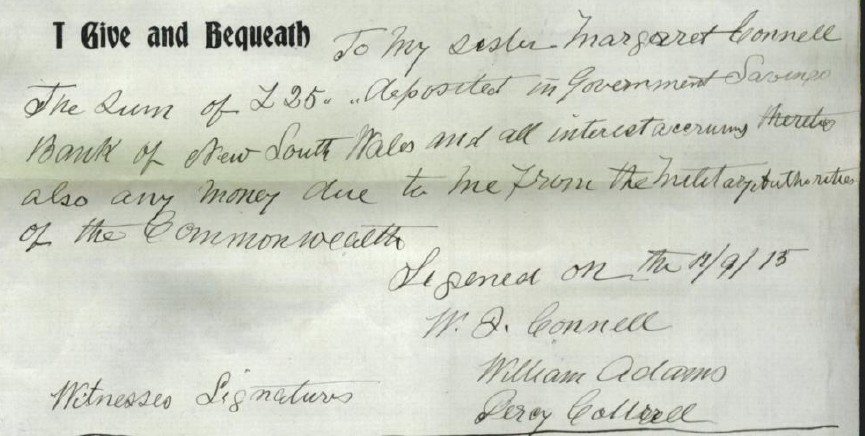 I Give and Bequeath To My sister Margaret Connell
The sum of £25" " deposited in Government Savings
Bank of New South Wales and all interest accruing thereto
also any money due to me from the Military Authorities
of the Commonwealth
Signed on the /9/15
W. J. Connell
William Adams
Witnesses Signatures
Percy Cottrell